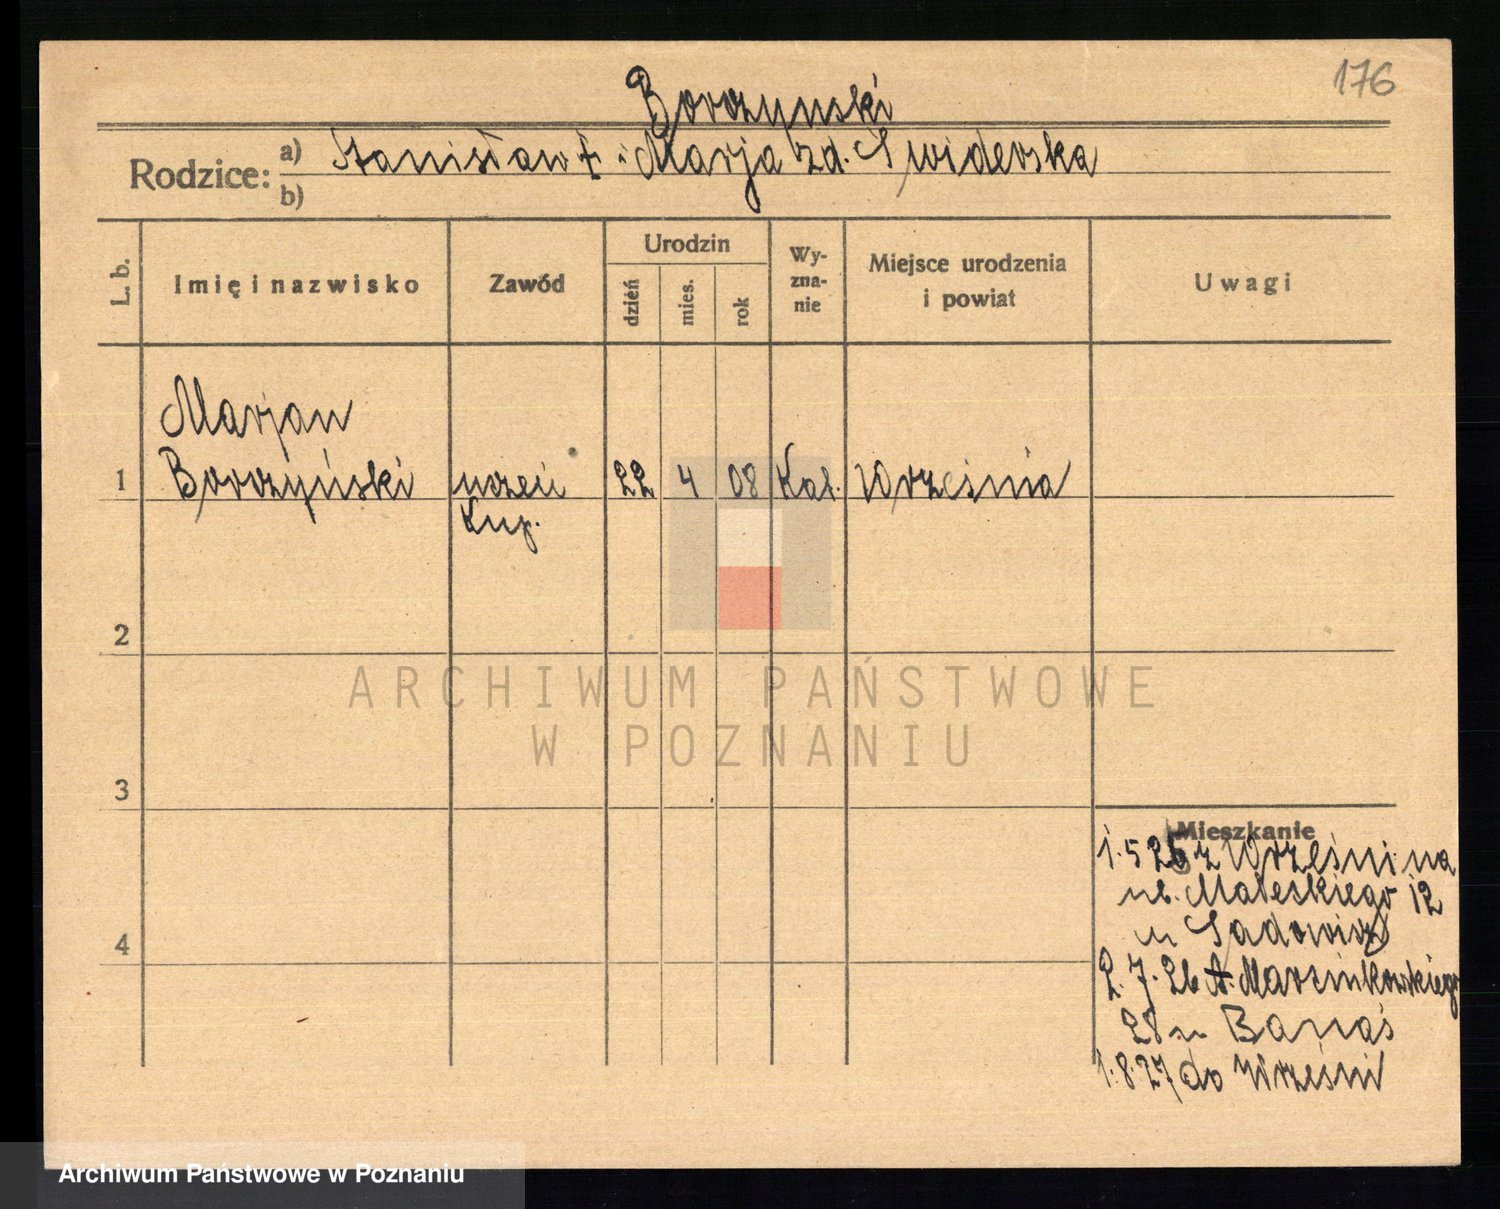 176
Borczynski
Rodzice: a) Stanisław i Marja zd. Swiderska
b)
L. b.
Imię i nazwisko
Zawód
Urodzin
dzień
mies.
rok
Wy-
zna-
nie
Miejsce urodzenia
i powiat
Uwagi
Marjan
1 Borczyński uczeń 22 4 08 Kat. Września
Kup.
2
ARCHIWUM PAŃSTWOWE
W POZNANIU
3
Mieszkanie
1.5 26 z Wrześni na
12
u
4
2.7.26 A. Marcinkowskiego
28 u Banaś
1.8.27 do Wrześni
Archiwum Państwowe w Poznaniu